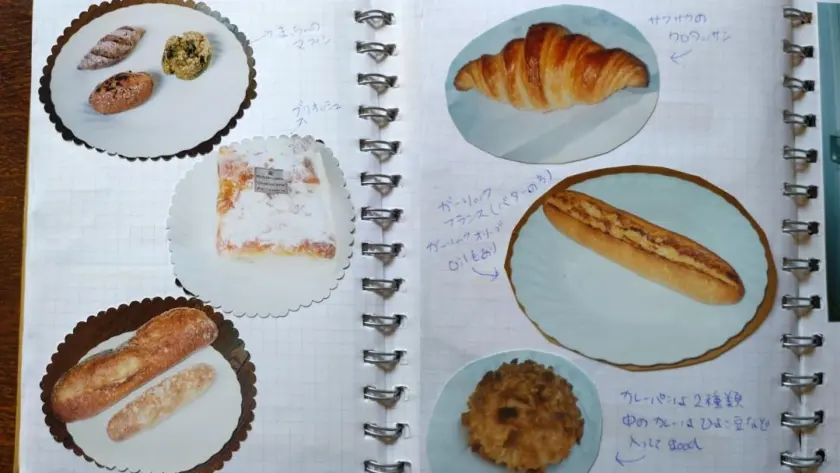 マフィン
ブリオッシュ
サクサクの
クロワッサン
ガーリック
フランス(バターのみ)
ガーリックオリーブ
カレーパンは2種類
中のカレーはひよこ豆など
入ってgood